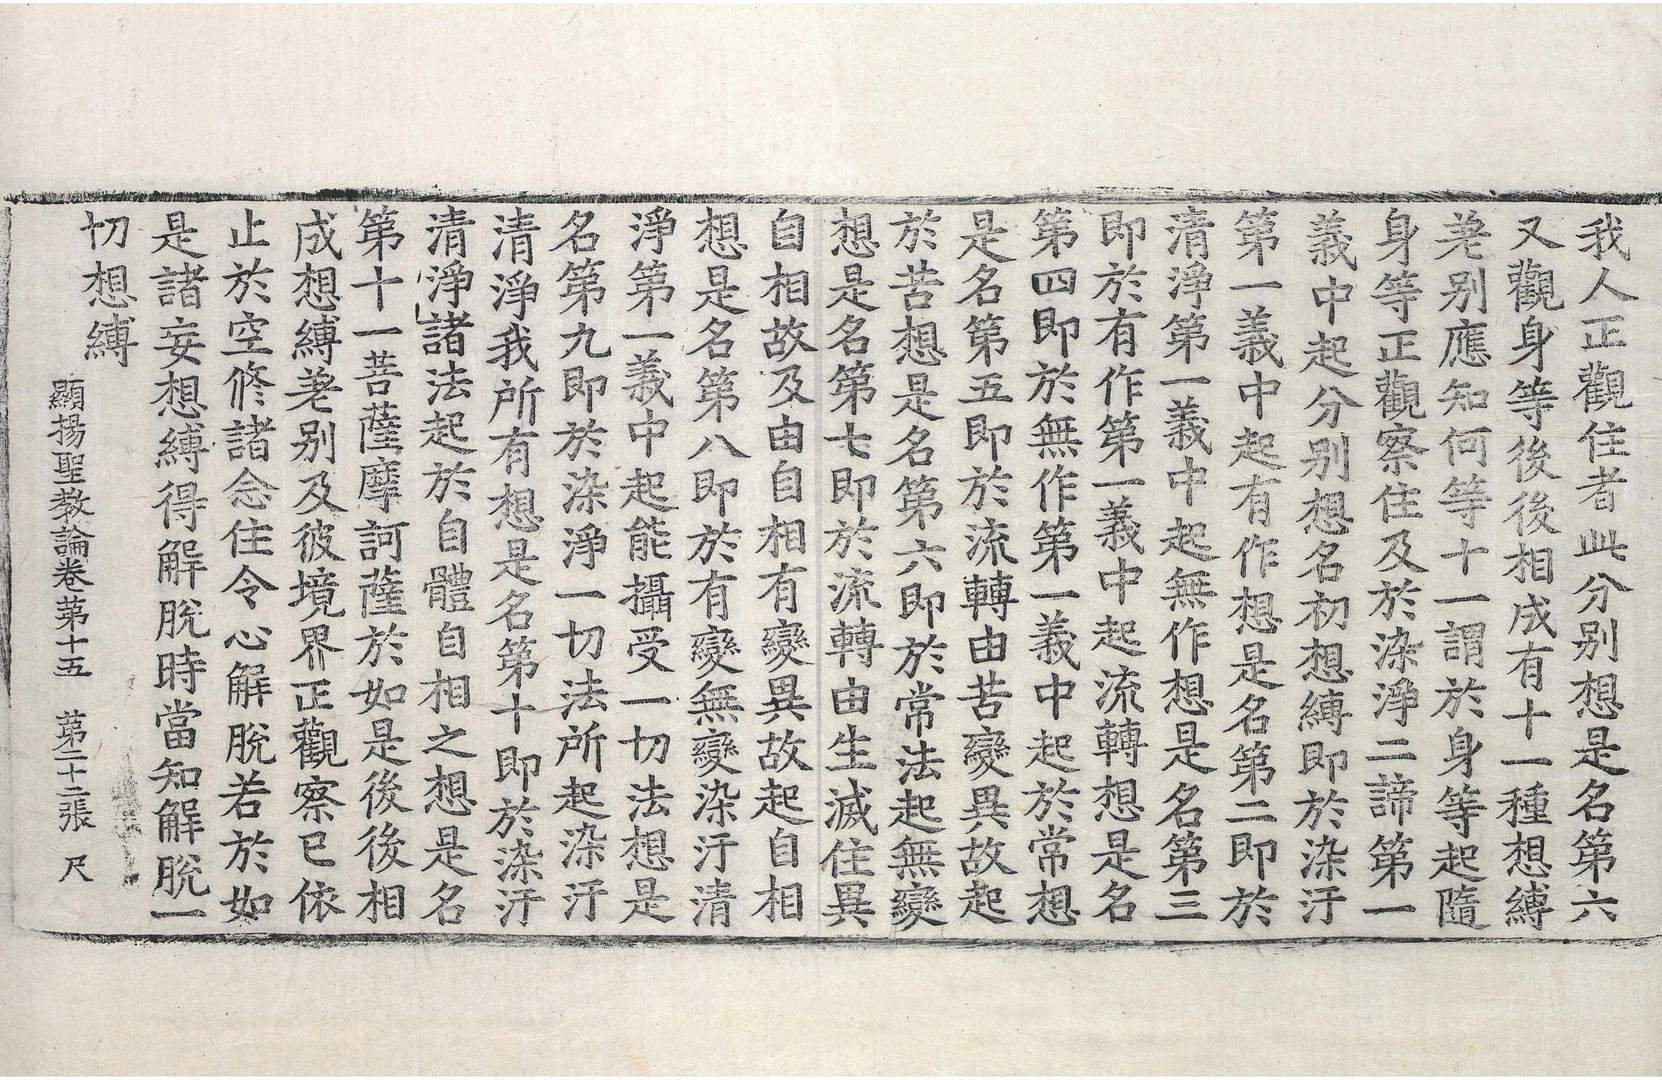 我人正觀住者此分别想是名第六
又觀身等後後相成有十一種想縛
差别應知何等十一謂於身等起隨
身等正觀察住及於染淨二諦第一
義中起分别想名初想縛即於染汙
第一義中起有作想是名第二即於
清淨第一義中起無作想是名第三
即於有作第一義中起流轉想是名
第四即於無作第一義中起於常想
是名第五即於流轉由苦變異故起
於苦想是名第六即於常法起無變
想是名第七即於流轉由生滅住異
自相故及由自相有變異故起自相
想是名第八即於有變無變染汙清
淨第一義中起能攝受一切法想是
名第九即於染淨一切法所起染汙
清淨我所有想是名第十即於染汙
清淨諸法起於自體自相之想是名
第十一菩薩摩訶薩於如是後後相
成想縛差别及彼境界正觀察已依
止於空修諸念住令心解脫若於如
是諸妄想縛得解脫時當知解脫一
切想縛
顯揚聖教論卷第十五 第二十二張 尺